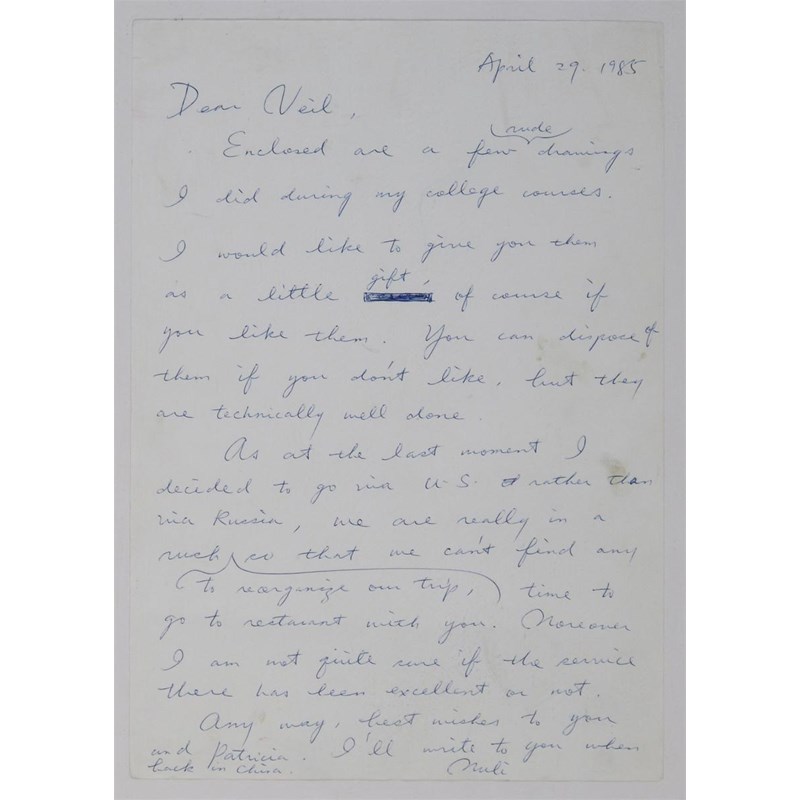 April 29. 1985
Dear Neil,
Enclosed are a few nude drawings
I did during my college courses.
I would like to give you them
as a little gift, of course if
you like them. You can dispose of
them if you don't like, but they
are technically well done.
As at the last moment I
decided to go via U.S. rather than
via Russia, we are really in a
rush to reorganize our trip, so that we can't find any
time to
go to restaurant with you. Moreover
I am not quite sure if the service
there has been excellent or not.
Any way, best wishes to you
and Patricia. I'll write to you when
back in China.